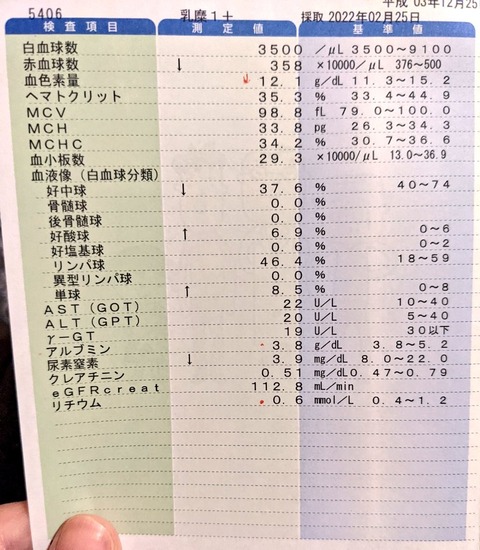 平成 03年12月25
5406 乳糜1+ 採取 2022年02月25日
検査項目 測定値 基準値
白血球数 3500 /μL 3500～9100
赤血球数 ↓ 358 ×10000/μL 376～500
血色素量 ↓ 12.1 g/dL 11.3～15.2
ヘマトクリット 35.3 % 33.4～44.9
MCV 98.8 fL 79.0～100.0
MCH 33.8 pg 26.3～34.3
MCHC 34.2 % 30.7～36.6
血小板数 29.3 ×10000/μL 13.0～36.9
血液像（白血球分類）
好中球 ↓ 37.6 % 40～74
骨髄球 0.0 %
後骨髄球 0.0 %
好酸球 ↑ 6.9 % 0～6
好塩基球 0.6 % 0～2
リンパ球 46.4 % 18～59
異型リンパ球 0.0 %
単球 ↑ 8.5 % 0～8
AST（GOT） 22 U/L 10～40
ALT（GPT） 20 U/L 5～40
γ－GT 19 U/L 30以下
アルブミン 3.8 g/dL 3.8～5.2
尿素窒素 ↓ 3.9 mg/dL 8.0～22.0
クレアチニン 0.51 mg/dL 0.47～0.79
eGFRcreat 112.8 mL/min
リチウム 0.6 mmol/L 0.4～1.2